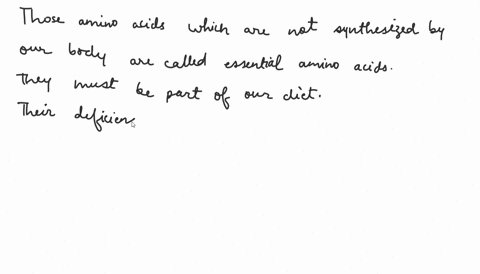 Those amino acids which are not synthesized by
our body are called essential amino acids.
They must be part of our diet.
Their deficien